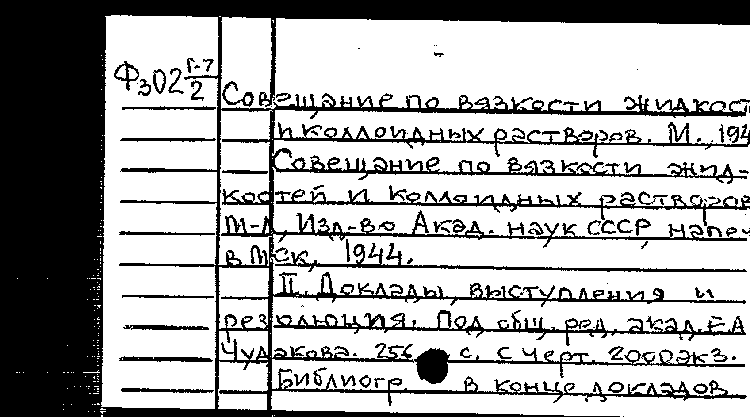 Ф302 Г-7/2
Совещание по вязкости жидкост
и коллоидных растворов. М., 194
Совещание по вязкости жид-
костей и коллоидных растворов
М-Л, Изд-во Акад. наук СССР, напеч
в Мск, 1944.
II. Доклады, выступления и
резолюция. Под общ. ред. акад. ЕА
Чудакова. 256 с. с черт. 2000экз.
Библиогр в конце докладов